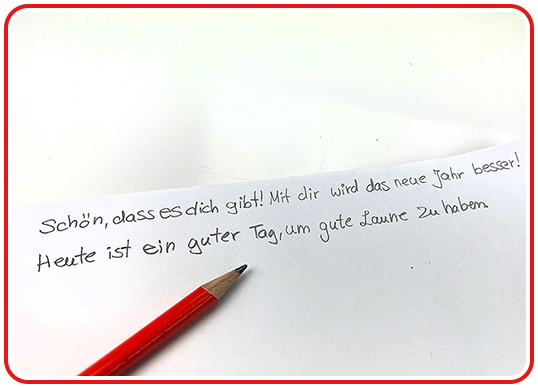 Schön, dass es dich gibt! Mit dir wird das neue Jahr besser!
Heute ist ein guter Tag, um gute Laune zu haben.